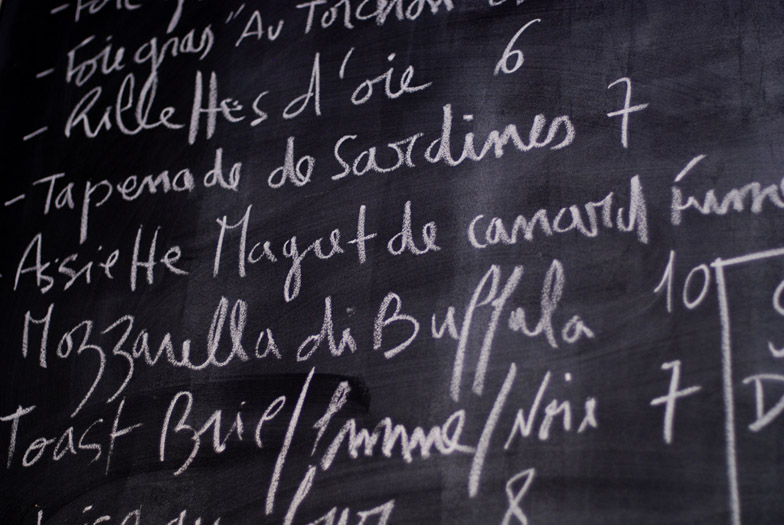 - Foie gras "Au Torchon
- Rillettes d'oie 6
- Tapenade de Sardines 7
Assiette Magret de canard
Mozzarella di Buffala 10
Toast Brie/Pomme/Noix 7
8